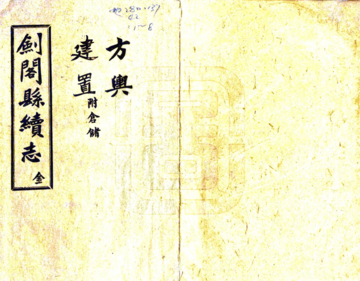 方輿
建置附倉儲
劍閣縣續志 金